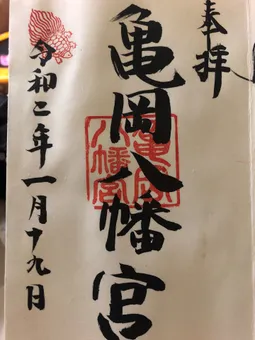 奉拝
亀岡八幡宮
亀岡八幡宮
令和二年一月十九日